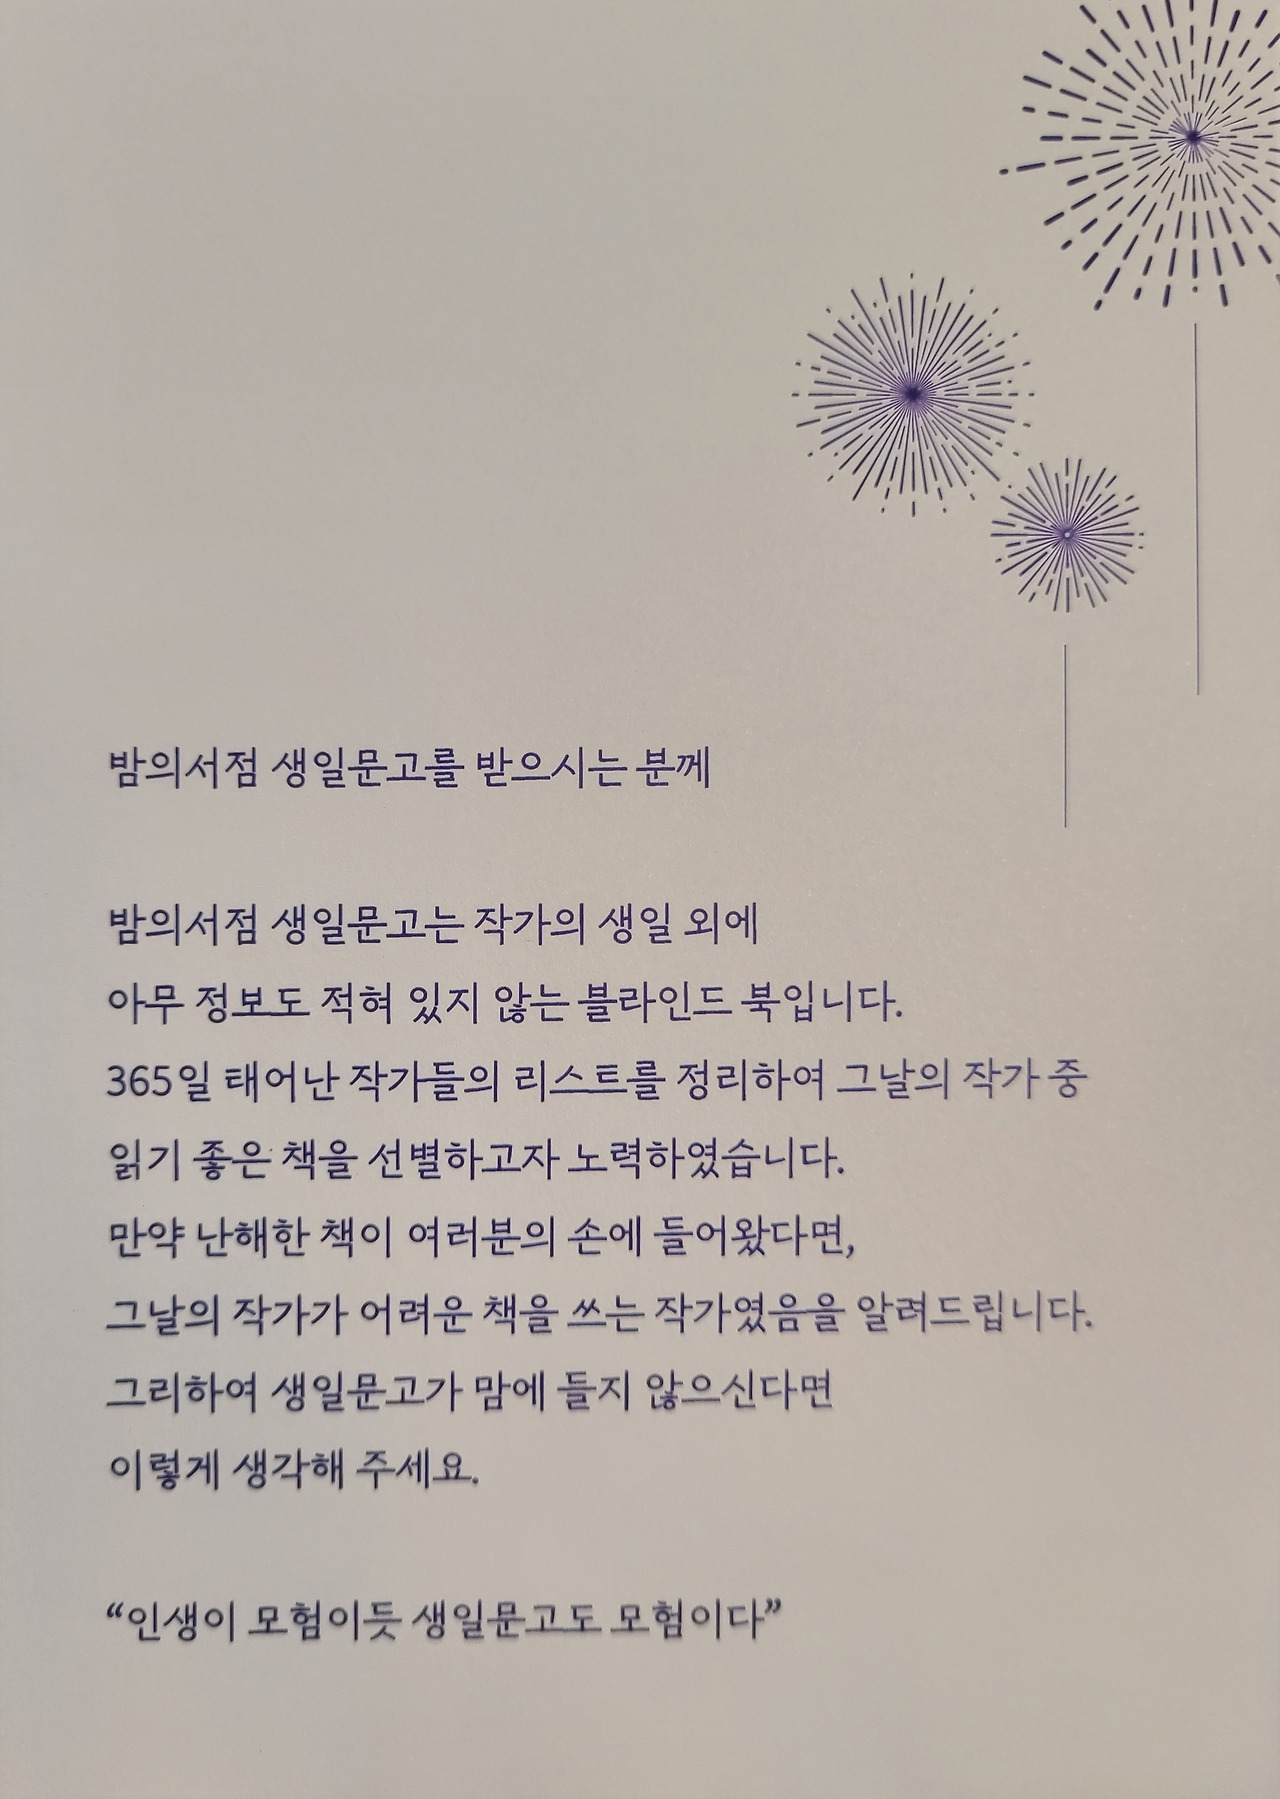 밤의서점 생일문고를 받으시는 분께
밤의서점 생일문고는 작가의 생일 외에
아무 정보도 적혀 있지 않는 블라인드 북입니다.
365일 태어난 작가들의 리스트를 정리하여 그날의 작가 중
읽기 좋은 책을 선별하고자 노력하였습니다.
만약 난해한 책이 여러분의 손에 들어왔다면,
그날의 작가가 어려운 책을 쓰는 작가였음을 알려드립니다.
그리하여 생일문고가 맘에 들지 않으신다면
이렇게 생각해 주세요.
“인생이 모험이듯 생일문고도 모험이다”